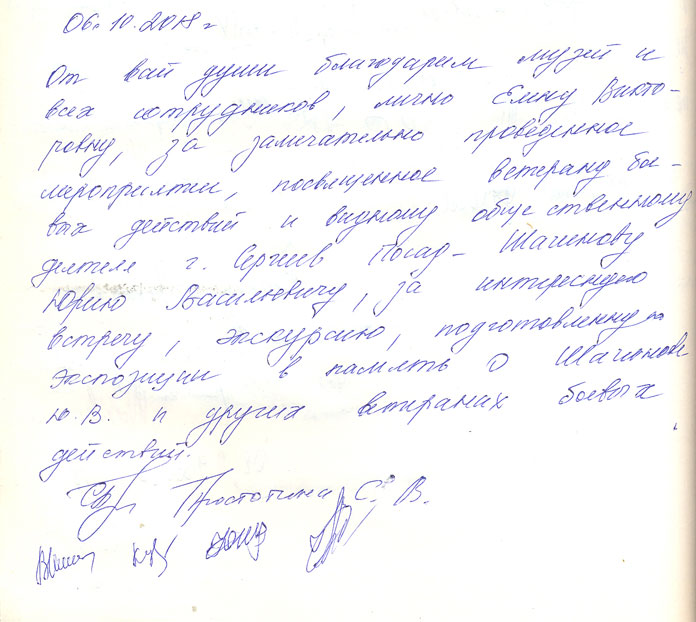 06.10.2018 г
От всей души благодарим музей и
всех сотрудников, лично Елену Викто-
ровну, за замечательно проведённое
мероприятии, посвященное ветерану бое-
вых действий и видному общественному
деятелю г. Сергиев Посад - Шаченову
Юрию Васильевичу, за интересную
встречу, экскурсию, подготовленную
экспозиции в память о Шаченове
Ю.В. и других ветеранах боевых
действий.
С. В.